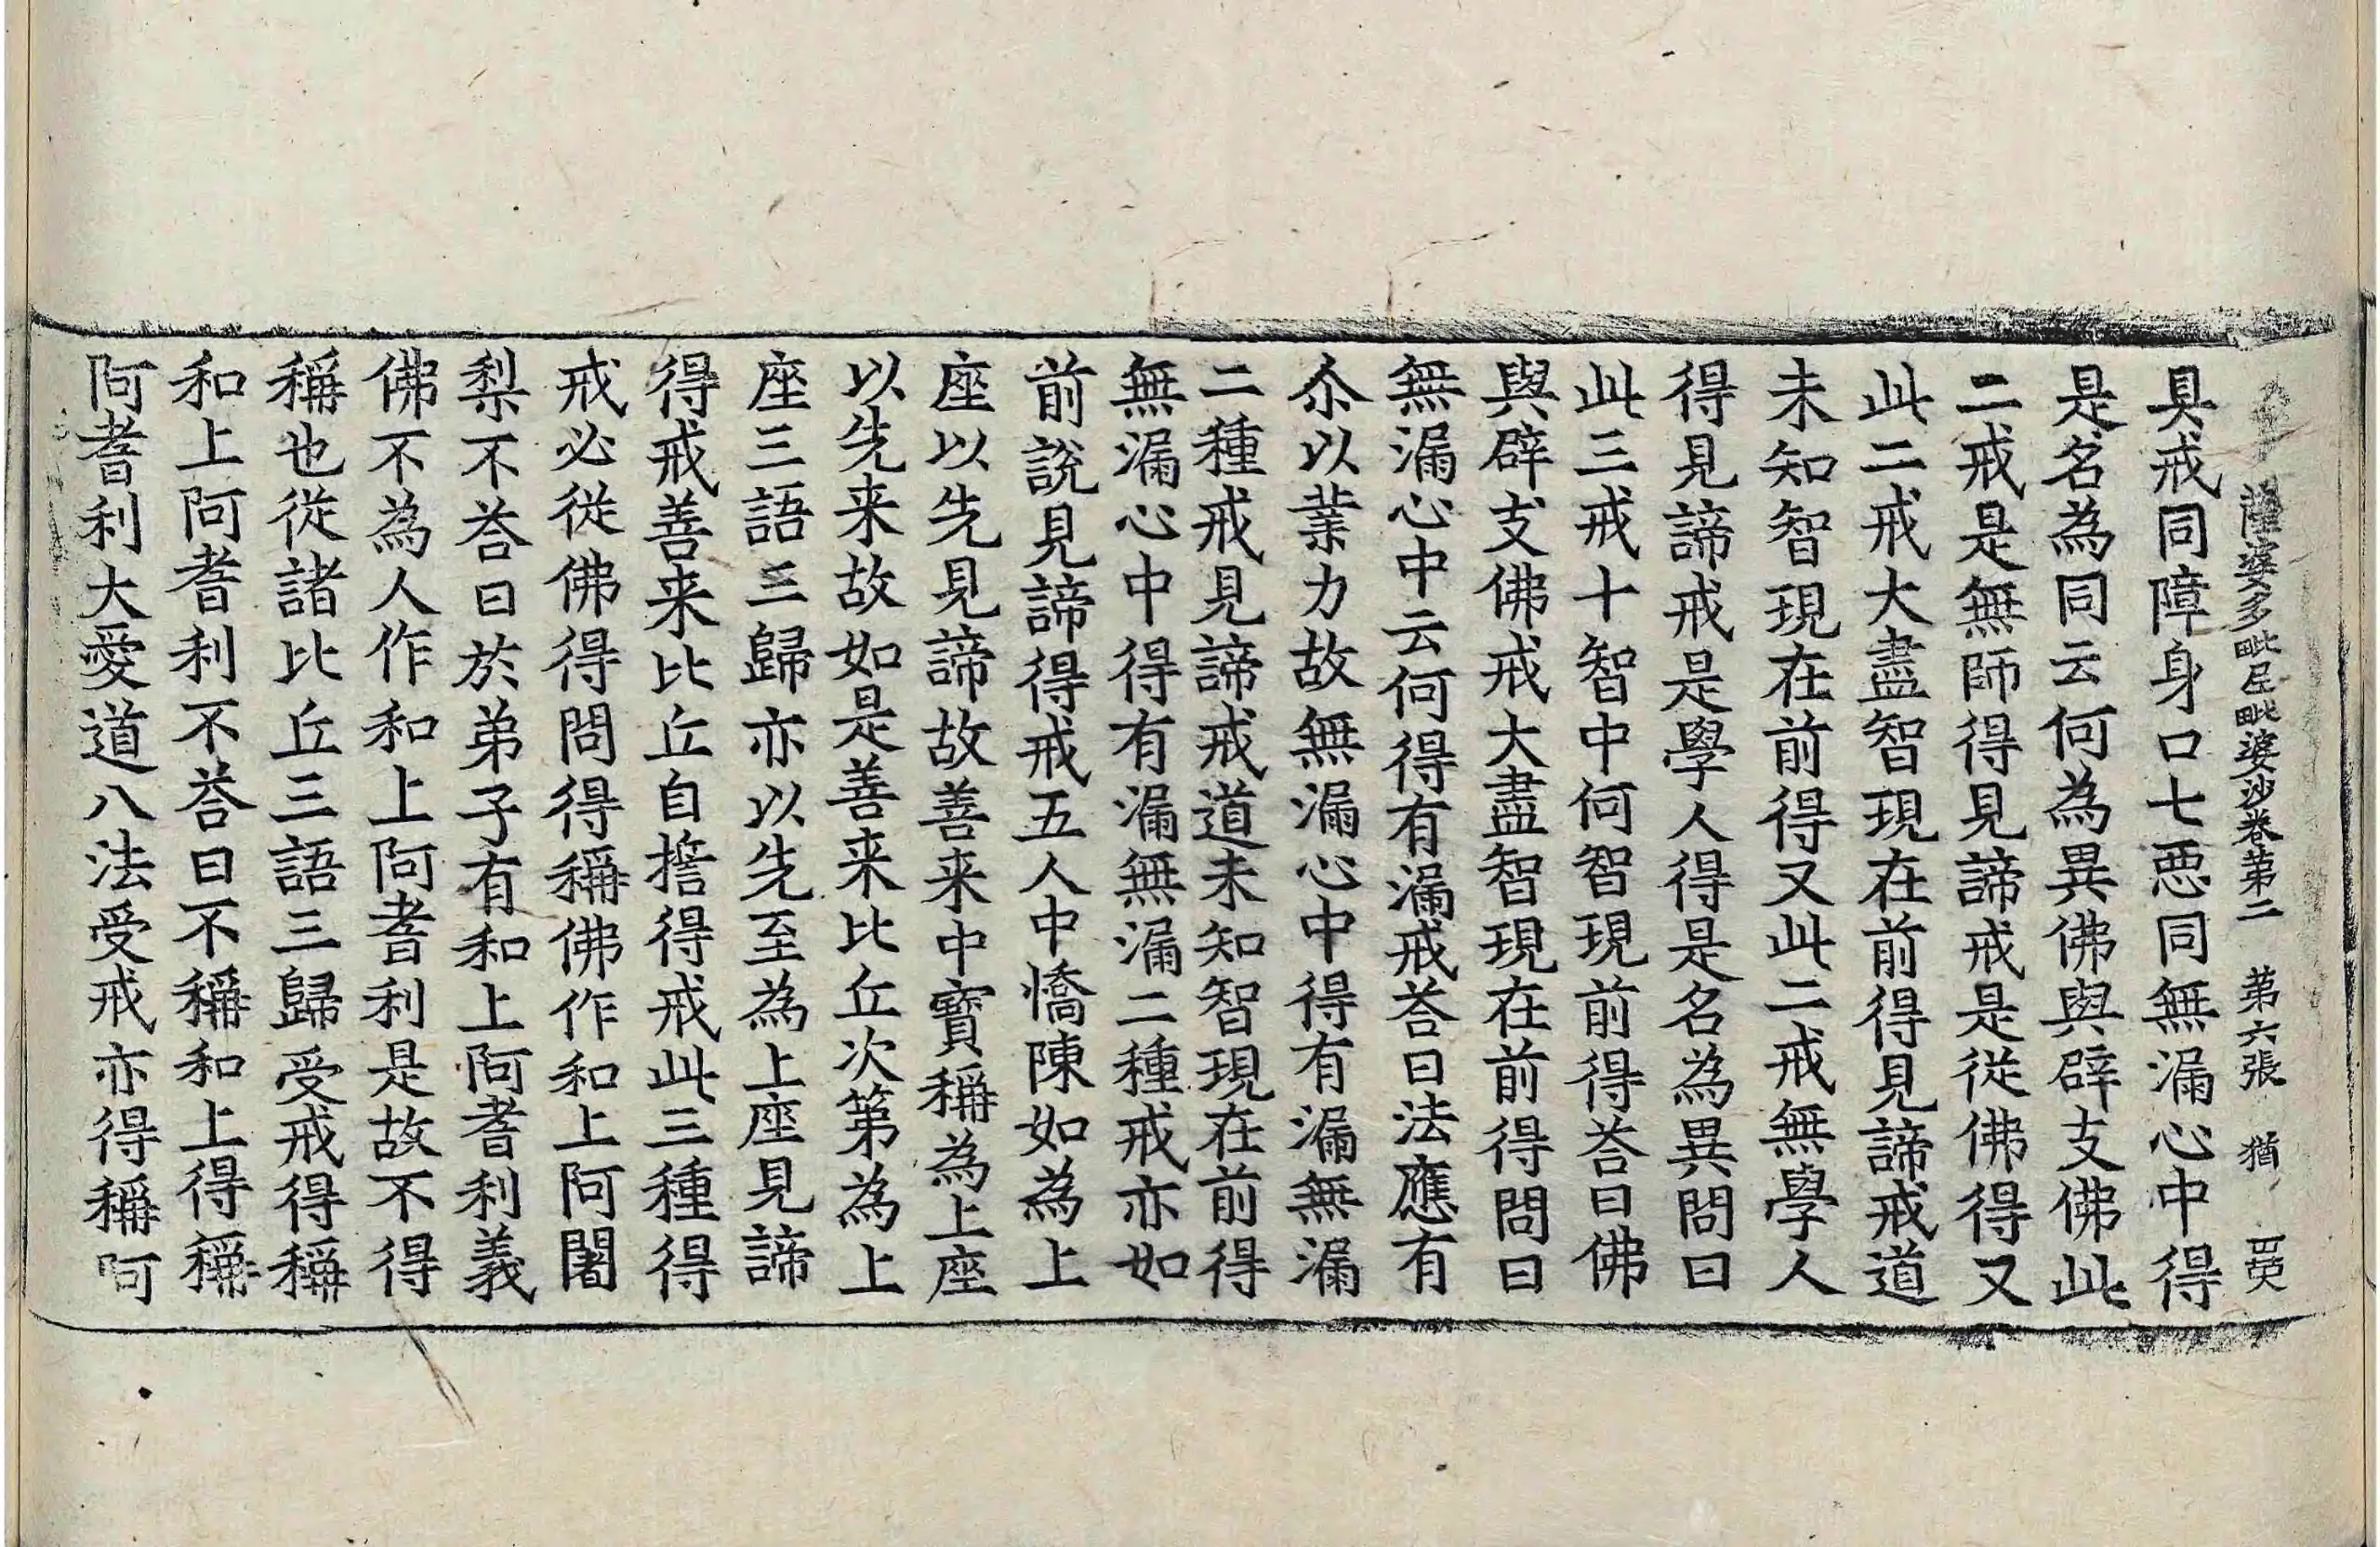 薩婆多毗尼毗婆沙卷第二 第六張 猶
具戒同障身口七惡同無漏心中得
是名為同云何為異佛與辟支佛此
二戒是無師得見諦戒是從佛得又
此二戒大盡智現在前得見諦戒道
未知智現在前得又此二戒無學人
得見諦戒是學人得是名為異問曰
此三戒十智中何智現前得荅曰佛
與辟支佛戒大盡智現在前得問曰
無漏心中云何得有漏戒荅曰法應有
尒以業力故無漏心中得有漏無漏
二種戒見諦戒道未知智現在前得
無漏心中得有漏無漏二種戒亦如
前說見諦得戒五人中憍陳如為上
座以先見諦故善来中寳稱為上座
以先来故如是善来比丘次第為上
座三語三歸亦以先至為上座見諦
得戒善来比丘自擔得戒此三種得
戒必從佛得問得稱佛作和上阿闍
梨不荅曰於弟子有和上阿耆利義
佛不為人作和上阿耆利是故不得
稱也從諸比丘三語三歸受戒得稱
和上阿耆利不荅曰不稱和上得稱
阿耆利大愛道八法受戒亦得稱阿